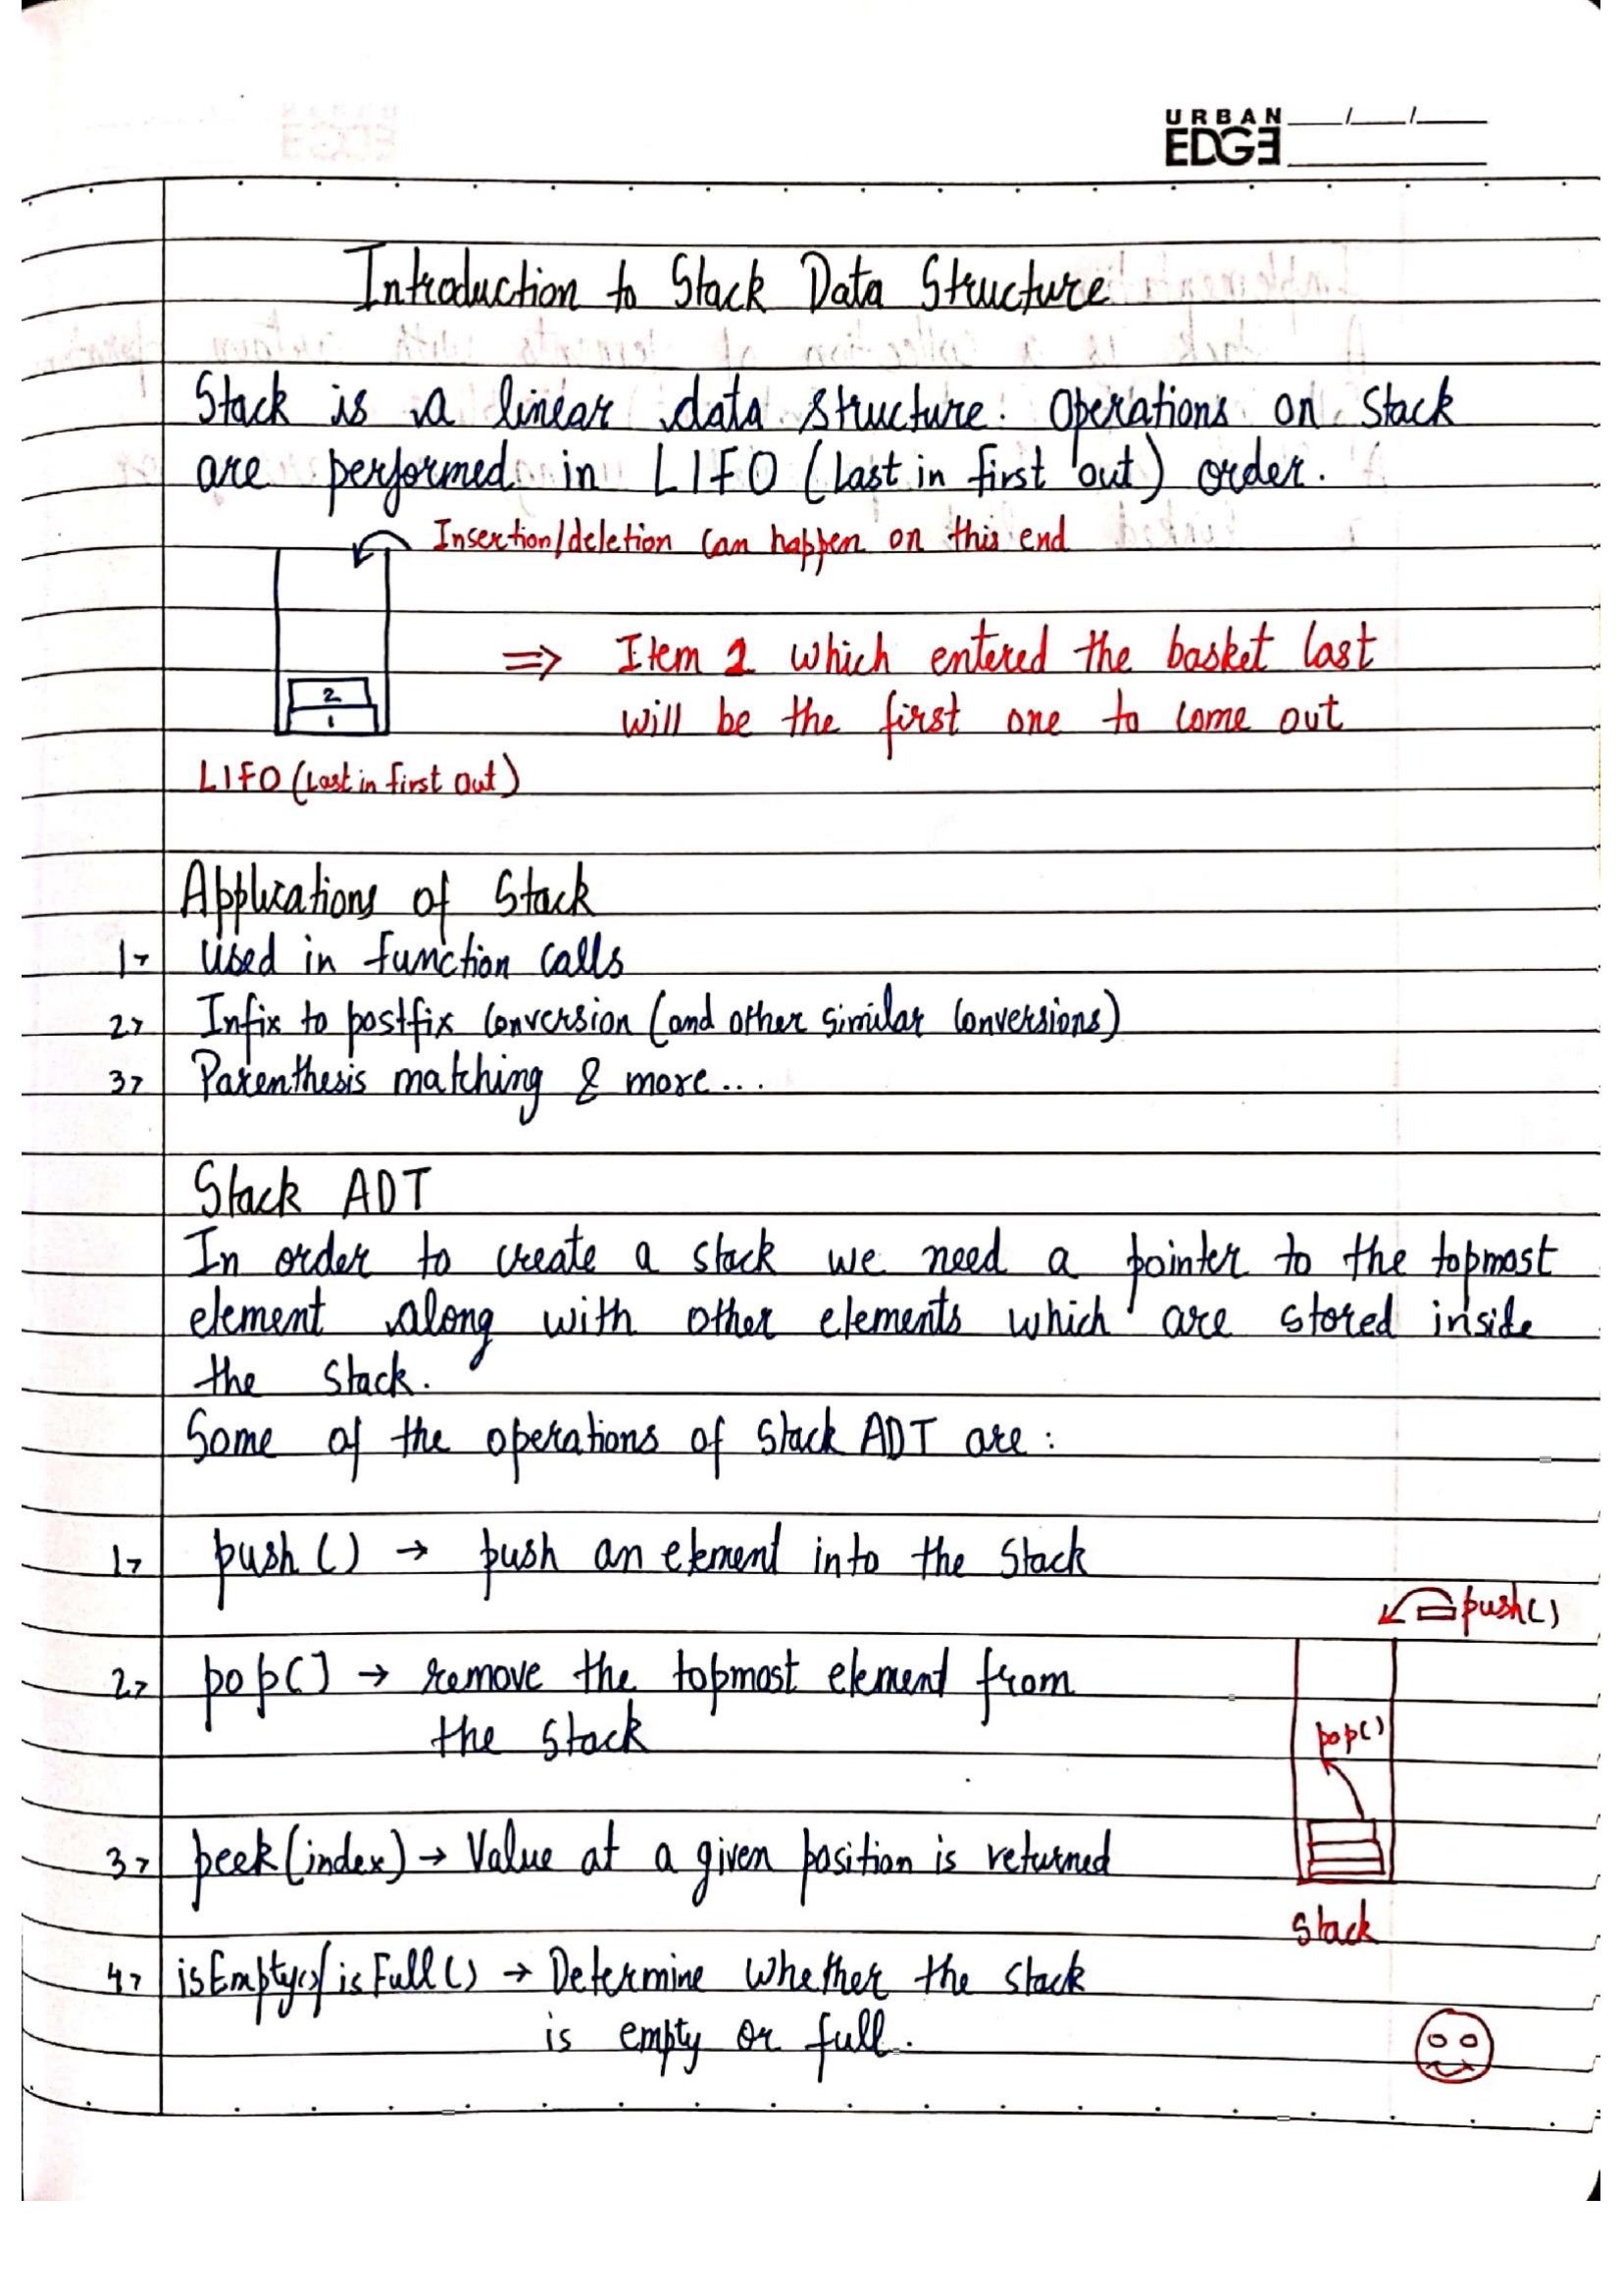 URBAN
EDGE
Introduction to Stack Data Structure
Stack is a linear data structure. Operations on Stack
are performed in LIFO (last in first out) order.
Insertion/deletion can happen on this end
⇒ Item 2 which entered the basket last
will be the first one to come out
2
1
LIFO (Last in first out)
Applications of Stack
1> Used in function calls
2> Infix to postfix conversion (and other similar conversions)
3> Parenthesis matching & more...
Stack ADT
In order to create a stack we need a pointer to the topmost
element along with other elements which are stored inside
the stack.
Some of the operations of Stack ADT are :
1> push () → push an element into the Stack
push()
2> pop() → remove the topmost element from
the Stack
pop()
3> peek (index) → Value at a given position is returned
Stack
4> isEmpty()/isFull() → Determine whether the stack
is empty or full.